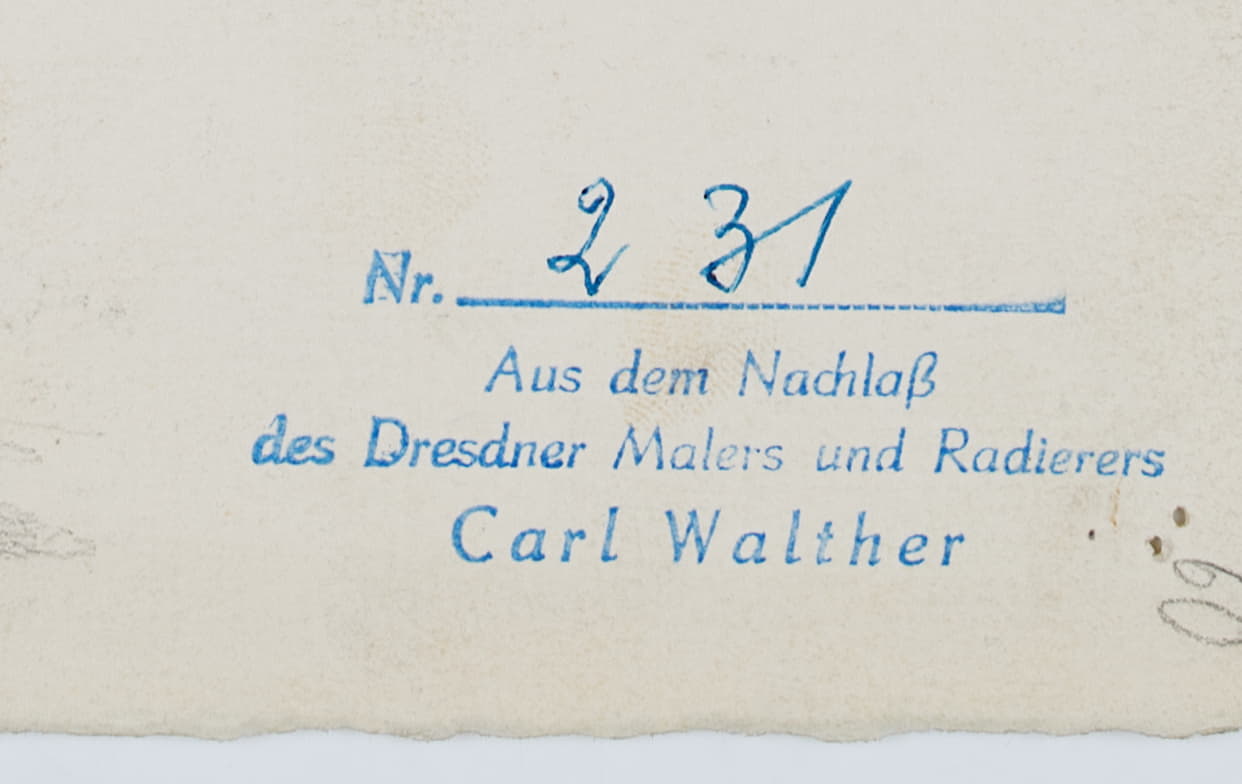 Nr. 2 31
Aus dem Nachlaß
des Dresdner Malers und Radierers
Carl Walther